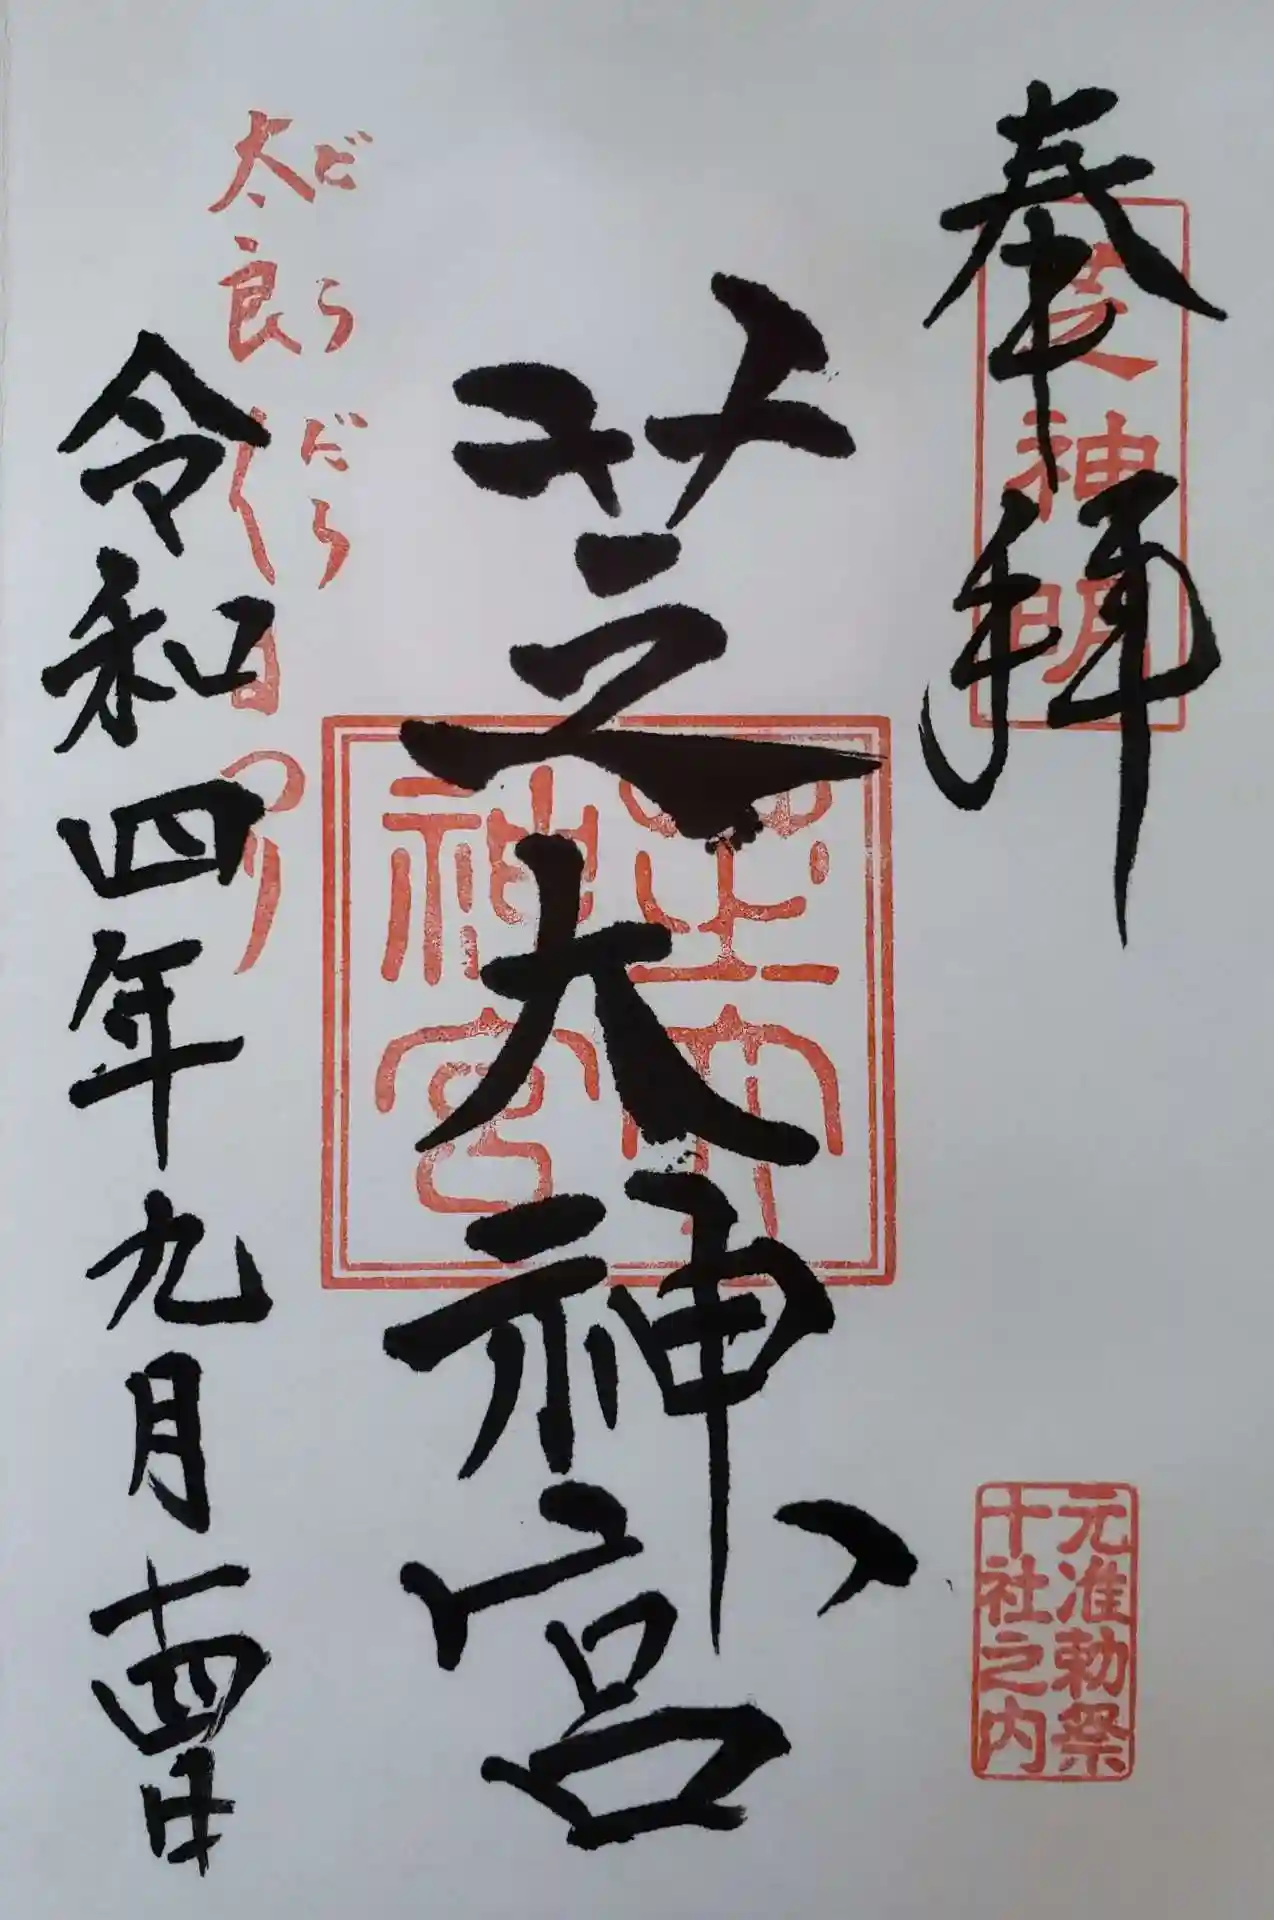 奉拝
芝神明
元准勅祭
十社之内
芝大神宮
芝大
神宮
だらだら
太良まつり
令和四年九月十四日